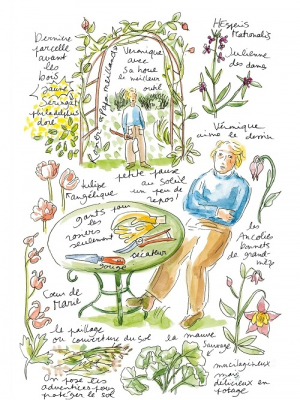 Dernière
parcelle
avant
les
bois
jaune
Seringat
philadelphus
doré
Véronique
avec
sa houe
le meilleur
outil
Hesperis
Matronalis
Julienne
des dames
Véronique
aime le dessin
petite pause
au soleil
un peu de
repos!
tulipe
Angélique
gants pour
les
rosiers
seulement
sécateur
gouge
les
Ancolies
bonnets
de grand-
mère
Cœur de
Marie
le paillage
ou couverture du sol
la mauve
sauvage
mucilagineux
mais
délicieux en
potage
On pose les
adventices pour
protéger le sol